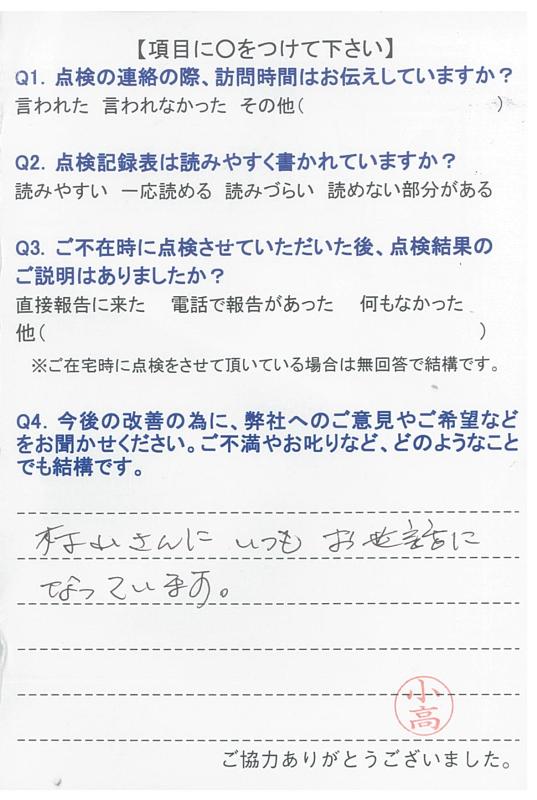 【項目に〇をつけて下さい】
Q1. 点検の連絡の際、訪問時間はお伝えしていますか？
言われた 言われなかった その他( )
Q2. 点検記録表は読みやすく書かれていますか？
読みやすい 一応読める 読みづらい 読めない部分がある
Q3. ご不在時に点検させていただいた後、点検結果の
ご説明はありましたか？
直接報告に来た 電話で報告があった 何もなかった
他( )
※ご在宅時に点検をさせて頂いている場合は無回答で結構です。
Q4. 今後の改善の為に、弊社へのご意見やご希望など
をお聞かせください。ご不満やお叱りなど、どのようなこと
でも結構です。
村山さんに いつも お世話に
なっています。
小高
ご協力ありがとうございました。